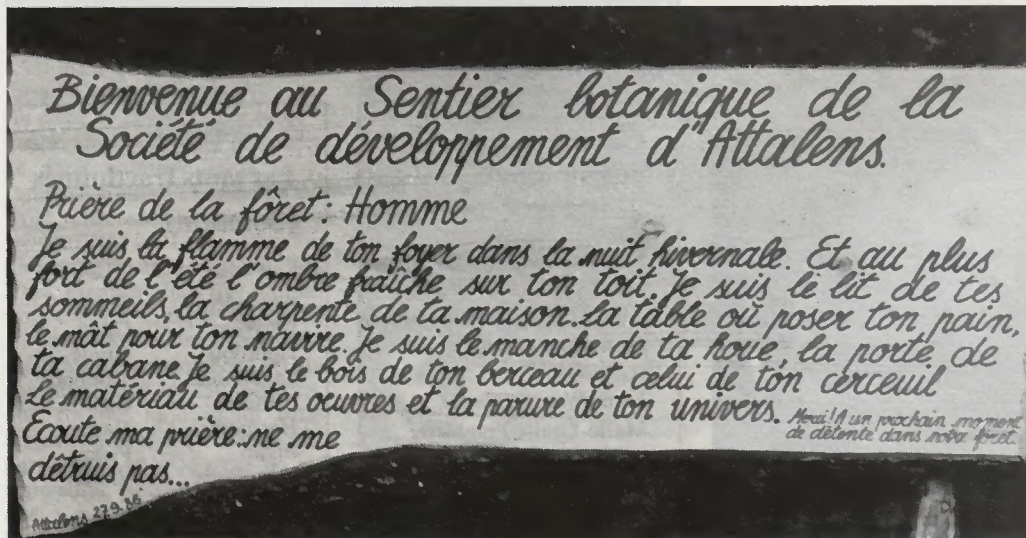 Bienvenue au Sentier botanique de la
Société de développement d'Attalens.
Prière de la fôret: Homme
Je suis la flamme de ton foyer dans la nuit hivernale. Et au plus
fort de l'été l'ombre fraîche sur ton toit. Je suis le lit de tes
sommeils, la charpente de ta maison. La table où poser ton pain,
le mât pour ton navire. Je suis le manche de ta houe, la porte de
ta cabane. Je suis le bois de ton berceau et celui de ton cerceuil
Le matériau de tes oeuvres et la parure de ton univers.
Ecoute ma prière: ne me
détruis pas...
Merci! A un prochain moment
de détente dans notre fôret.
Attalens 27.9.86